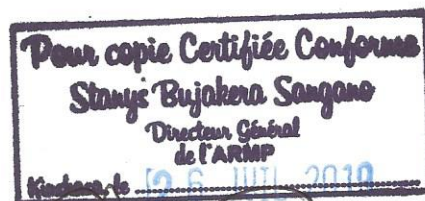 Pour copie Certifiée Conforme
Stanys Bujakera Sangano
Directeur Général
de l'ARMP
Kinshasa, le 26 JUIL 2019